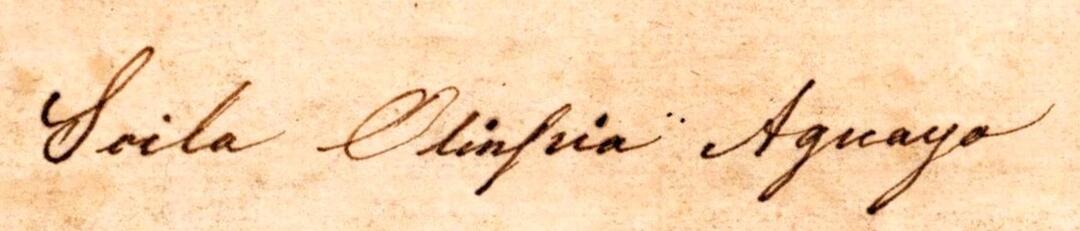 Soila Olinpia Aguayo